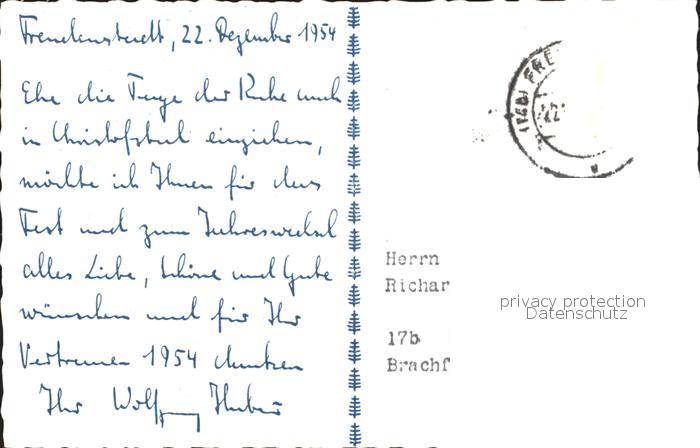 Freudenstadt, 22. Dezember 1954
Ehe die Tage der Ruhe auch
in Christofstal einziehen,
möchte ich Ihnen für das
Fest und zum Jahreswechsel
alles Liebe, Schöne und Gute
wünschen und für Ihr
Vertrauen 1954 danken
Ihr Wolfgang Huber
(14b) FRE
22
Herrn
Richar
17b
Brachf
privacy protection
Datenschutz